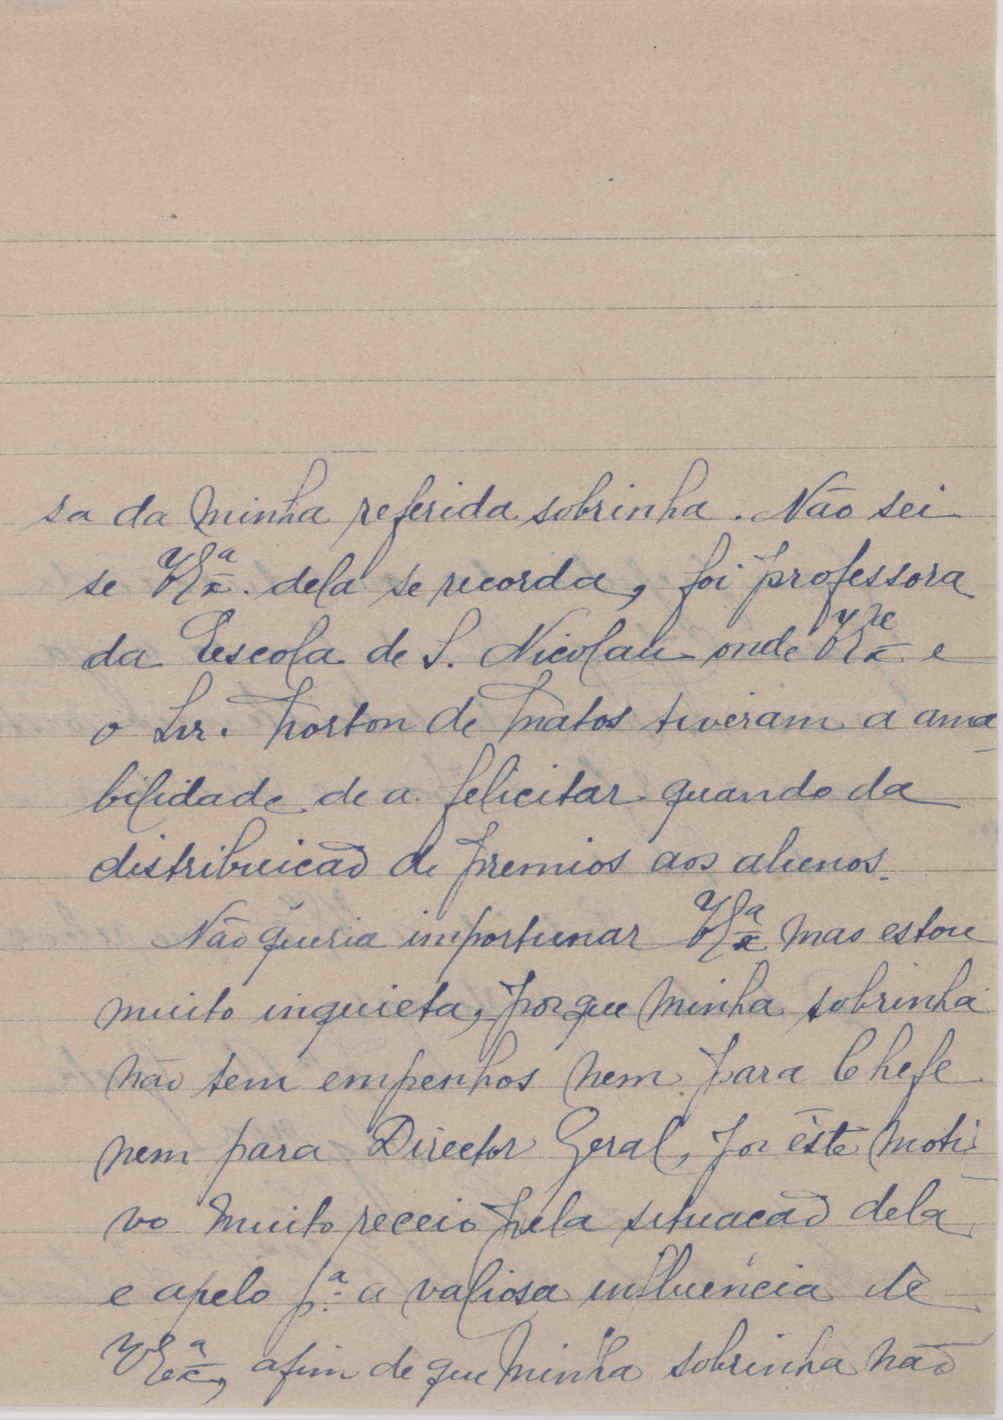 sa da minha referida sobrinha. Não sei
se V. Ex.ª dela se recorda, foi professora
da Escola de S. Nicolau onde V. Ex.ª e
o Snr. Norton de Matos tiveram a ama-
bilidade de a felicitar quando da
distribuicão de premios aos alunos.
Não queria importunar V. Ex.ª mas estou
muito inquieta, porque minha sobrinha
não tem empenhos nem para Chefe
nem para Director Geral, por êste moti-
vo muito receio pela situacão dela
e apelo p.ª a valiosa influência de
V. Ex.ª, afim de que minha sobrinha não